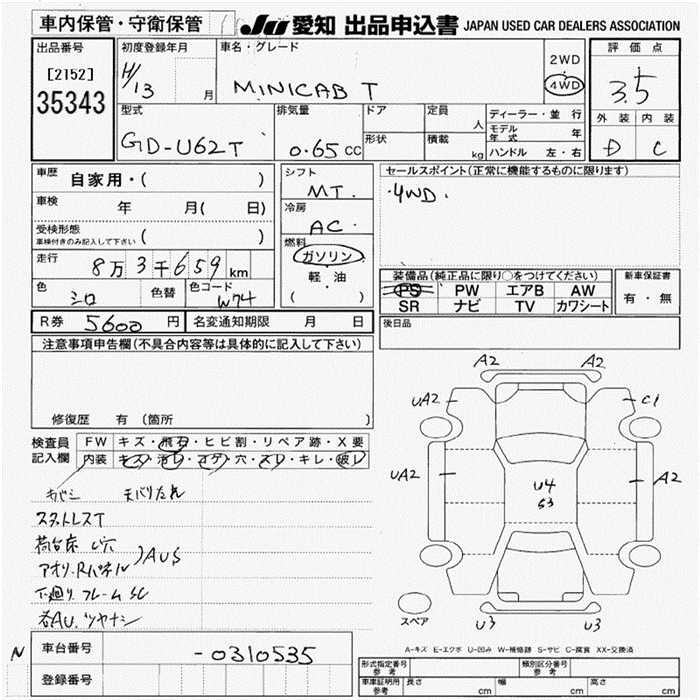 車内保管・守衛保管
JU 愛知 出品申込書 JAPAN USED CAR DEALERS ASSOCIATION
出品番号
[2152]
35343
初度登録年月
H/13 月
車名・グレード
MINICAB T
2WD
4WD
評価点
3.5
外装 内装
D C
型式
GD-U62T
排気量
0.65 cc
ドア
形状
定員
人
積載
kg
ディーラー・並行
モデル年式 年
ハンドル 左・右
車歴 自家用・( )
車検 年 月( 日)
受検形態
車検付きのみ記入して下さい ( )
走行 8万3千659 km
色 シロ 色替 色コード W74
シフト
MT.
冷房
AC
燃料
ガソリン
軽・油
( ・ )
セールスポイント(正常に機能するものに限ります)
・4WD.
装備品(純正品に限り○をつけてください)
PS PW エアB AW
SR ナビ TV カワシート
新車保証書
有・無
R券 5600 円 名変通知期限 月 日
後日品
注意事項申告欄(不具合内容等は具体的に記入して下さい)
修復歴 有 (箇所 )
検査員記入欄
FW キズ・飛石・ヒビ割・リペア跡・X要
内装 キズ・汚レ・コゲ・穴・スリ・キレ・破レ
天バリたれ
スタットレスT
荷台床 U穴
アオリ.Rパネル)AUS
下廻り フレームSC
各AU.ツヤナシ
A2 A2
UA2 C1
UA2 A2
U4
S3
U3 U3
スペア
A-キズ E-エクボ U-凹み W-補修跡 S-サビ C-腐食 XX-交換済
N
車台番号 -0310535
登録番号
形式指定番号 参考
類別区分番号 参考
車庫証明用 参考 長さ cm 幅 cm 高さ cm